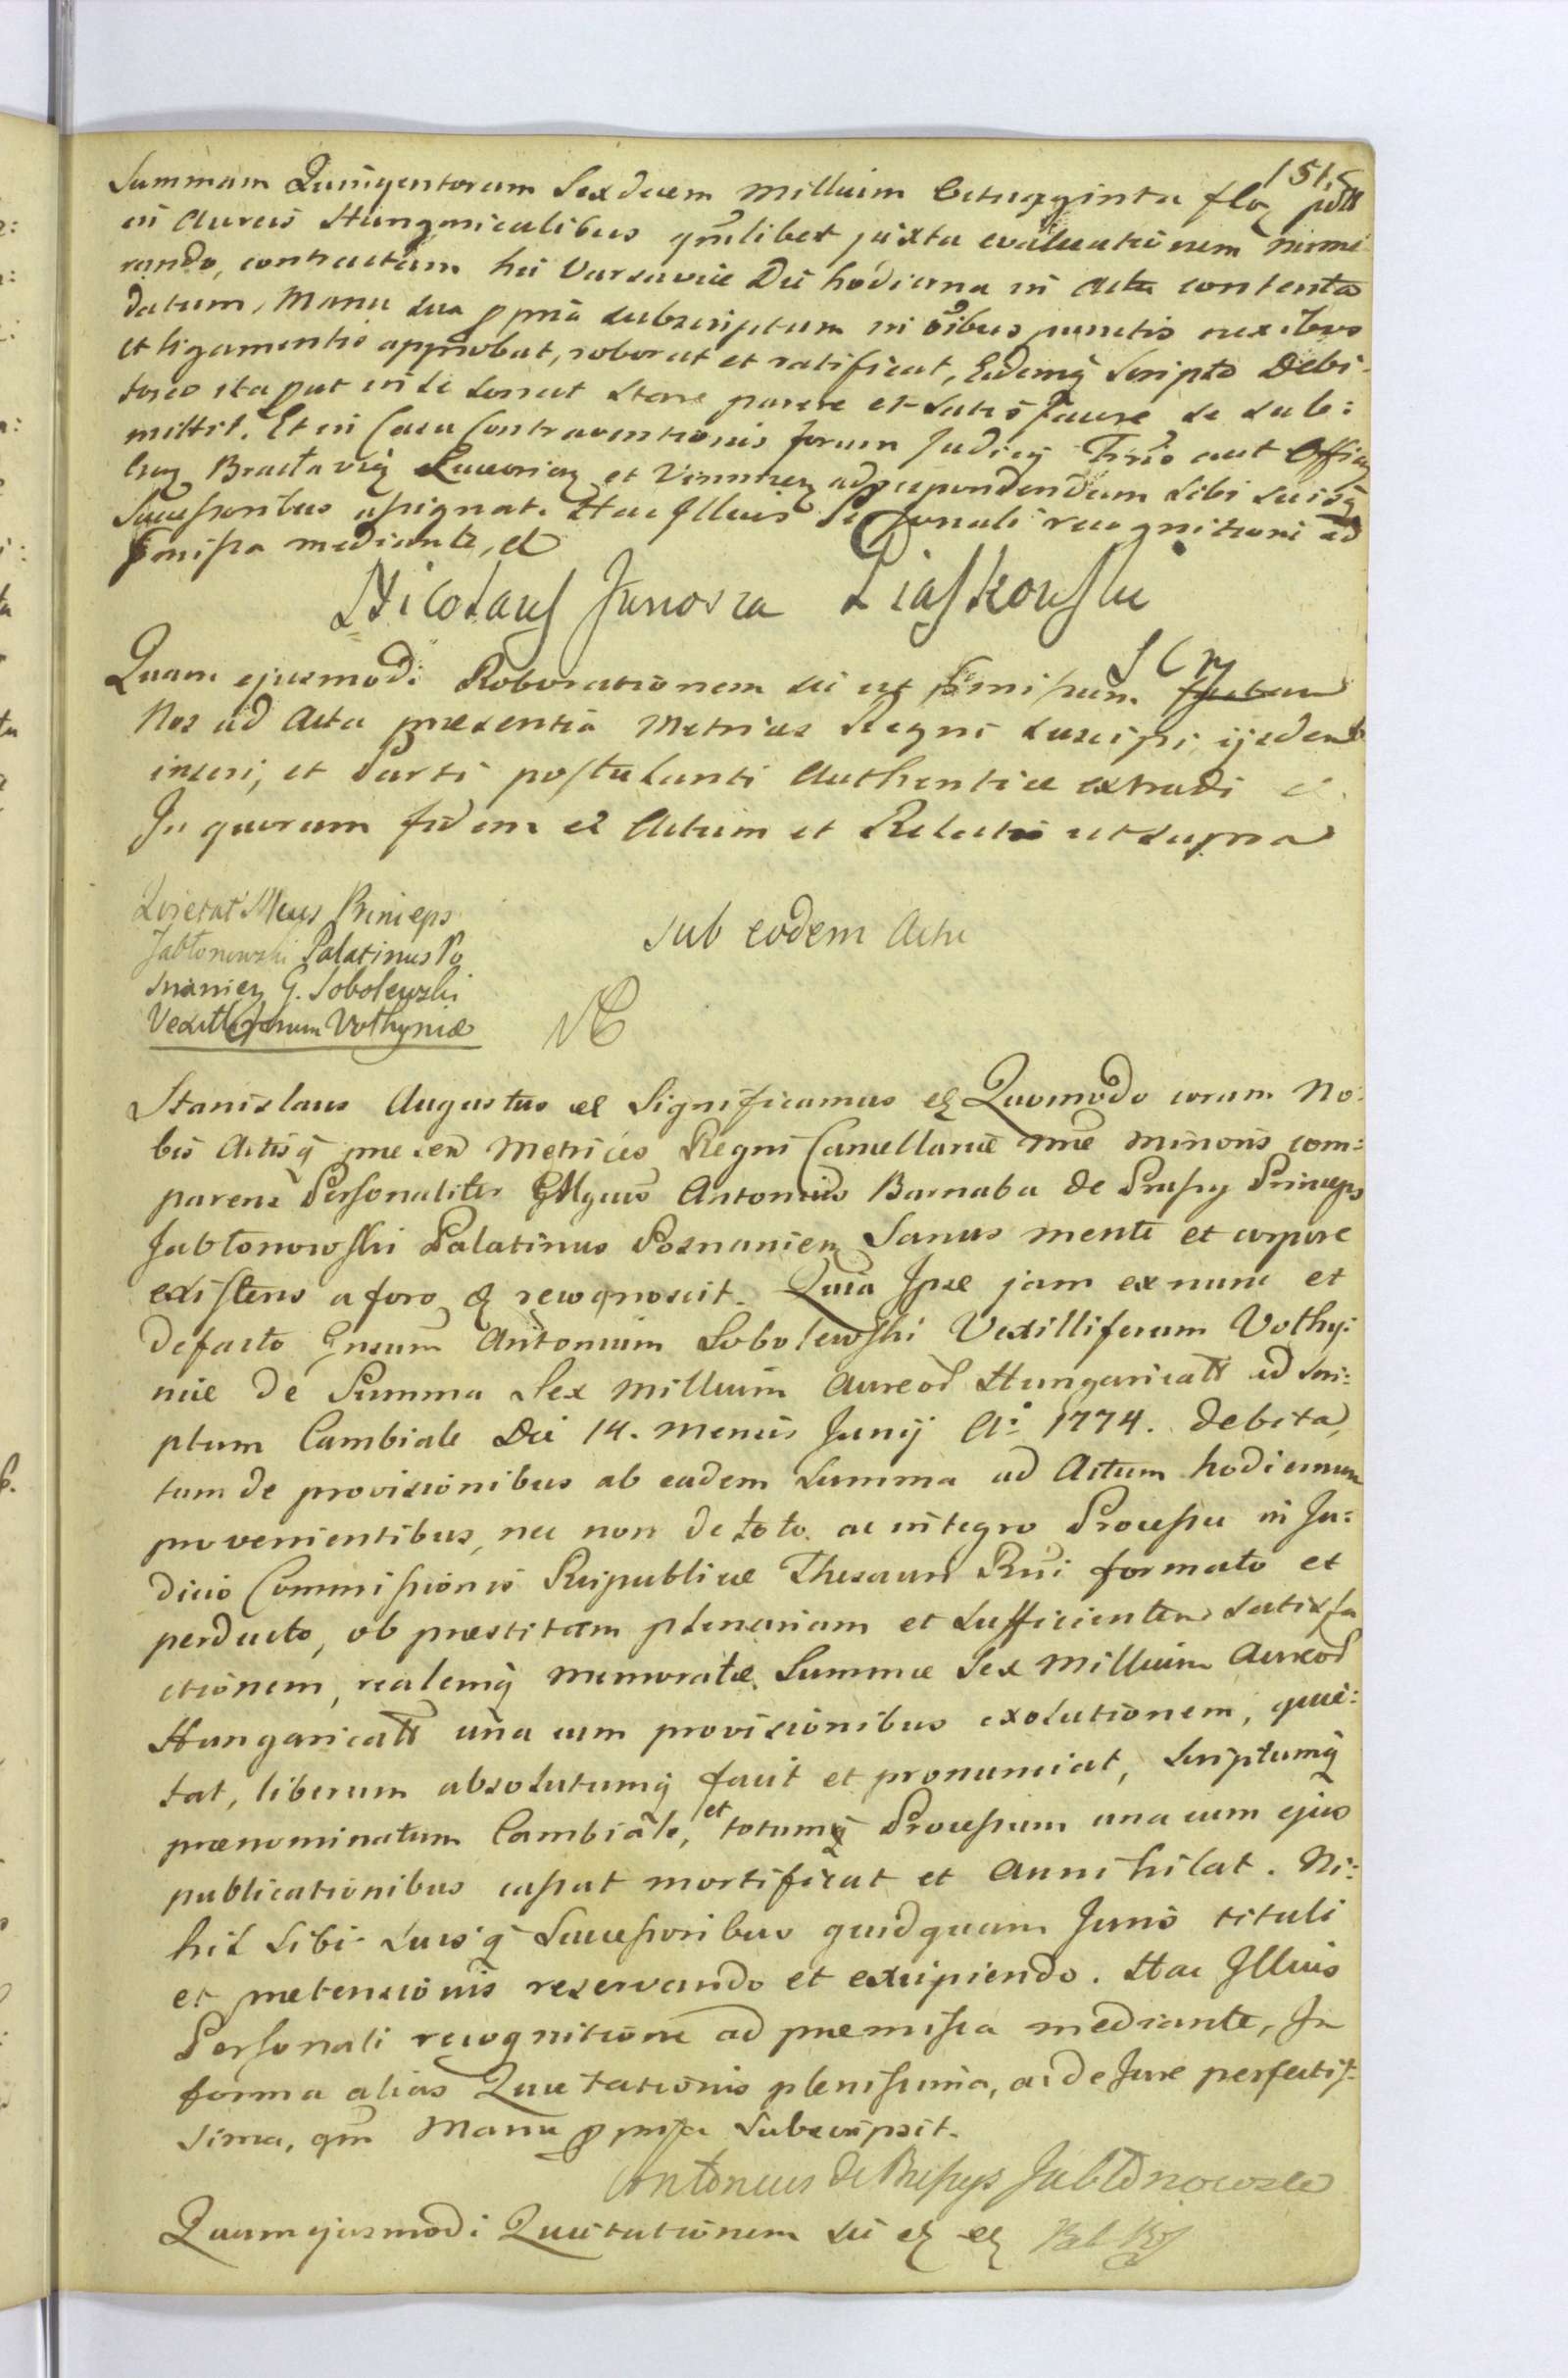 151.
Summam Quingentorum Sexdecem Millium Octuagginta flor polt
in Aureis Hungaricalibus qmlibet juxta evaluationem nume
rando, contractam hic Varsaviæ Die hodierna in Acta contenta
datum, Manu sua ppria subscriptum in oibus punctis nexibus
et ligamentis approbat, roborat et ratificat, Eidemq Scripto Debi-
torio ita put in se sonat stare parere et satisfacere se sub:
mittit. Et in Casu Contraventionis forum Judicij Trno aut Officij
Bractavien Luceorien et Vinnicen ad respondendum sibi suisq
Successoribus assignat. Hac Illius Personali recognitioni ad
pmissa mediante, et
Nicolaus Junosza Piaskowski
SCzy
Quam ejusmodi Roborationem sic ut pmissum
Nos ad Acta præsentia Metrices Regni suscipi, ijsdem
inseri, et Parti postulanti Authentice extradi
In quorum fidem et Actum et Relectio ut supra
Quietat Meus Princeps
Jabłonowski Palatinus Po
snanien G. Sobolewski
Vexilliferum Volhyniæ
sub eodem Actu
Stanislaus Augustus et Significamus et Quomodo coram No:
bis Actisq præsen Metrices Regni Cancellariæ mre minoris com:
parens Personaliter Mgcus Antonius Barnaba de Prussy Princeps
Jabłonowski Palatinus Posnanien Sanus mente et corpore
existens a foro et recognoscit. Quia Ipse jam ex nunc et
de facto Gnsum Antonium Sobolewski Vexilliferum Volhy:
niæ De Summa Sex Millium Aureor Hungaricalt ad Scri:
ptum Cambiale Die 14. Mensis Junij A: 1774. debita,
tum de provisionibus ab eadem Summa ad Actum hodiernum
provenientibus, nec non de toto ac integro Processu in Ju:
dicio Commissionis Reipublicæ Thesauri Rni formato et
perducto, ob præstitam plenariam et sufficientem satisfa
ctionem, realemq memoratæ Summæ Sex Millium Aureor
Hungaricalt una cum provisionibus exolutionem, quie:
tat, liberum absolutumq facit et pronunciat, Scriptumq
prænominatum Cambiale, et totumq Processum una cum ejus
publicationibus cassat mortificat et Annihilat. Ni:
hil sibi suisq Successoribus quidquam Juris tituli
et prætensionis reservando et excipiendo. Hac Illius
Personali recognitione ad præmissa mediante, In
forma alias Quietationis plenissima, ac de Jure perfectis:
sima, qm Manu ppria Subscripsit.
Antonius de Prussys Jabłonowski
Quam ejusmodi Quietationem sic et et